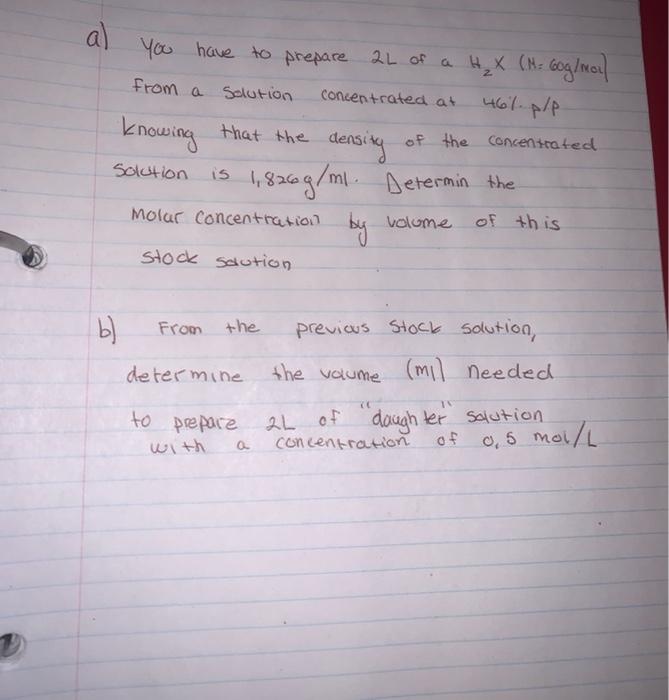 a) You have to prepare 2L of a H₂X (M= 60g/mol)
From a solution concentrated at 46% p/p
knowing that the density of the concentrated
solution is 1,826g/ml. Determin the
Molar concentration by volume of this
stock solution
b) From the previous stock solution,
determine the volume (ml) needed
to prepare 2L of "daughter" solution
with a concentration of 0,5 mol/L